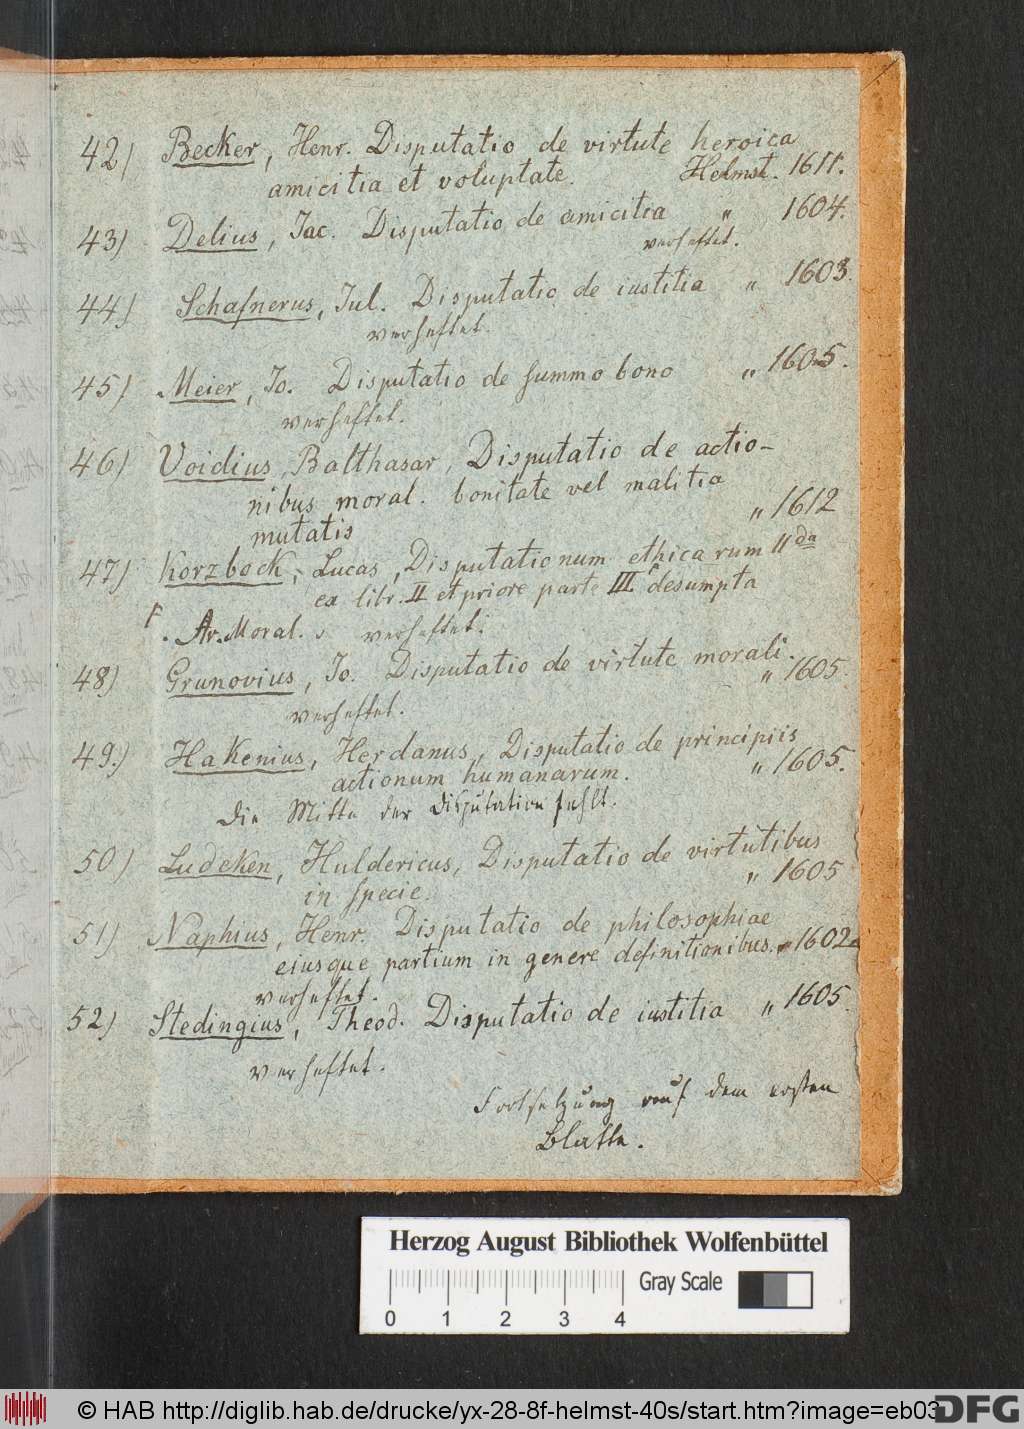 42) Becker, Henr. Disputatio de virtute heroica
amicitia et voluptate. Helmst. 1611.
43) Delius, Iac. Disputatio de amicitia " 1604.
verheftet.
44) Schafnerus, Iul. Disputatio de iustitia " 1603.
verheftet.
45) Meier, Io. Disputatio de summo bono " 1605.
verheftet.
46) Voidius, Balthasar, Disputatio de actio-
nibus moral. bonitate vel malitia
mutatis " 1612
47) Korzbock, Lucas, Disputationum ethicarum IIda
ex libr. II et priore parte III. desumpta
Ar. Moral. verheftet.
48) Grunovius, Io. Disputatio de virtute morali.
" 1605.
verheftet.
49.) Hakenius, Herdanus, Disputatio de principiis
actionum humanarum. " 1605.
Die Mitte der Disputation fehlt.
50) Ludeken, Huldericus, Disputatio de virtutibus
in specie. " 1605
51) Naphius, Henr. Disputatio de philosophiae
eiusque partium in genere definitionibus. " 1602.
verheftet.
52) Stedingius, Theod. Disputatio de iustitia " 1605.
verheftet.
Fortsetzung auf dem ersten
Blatte.
Herzog August Bibliothek Wolfenbüttel
Gray Scale
0 1 2 3 4
© HAB http://diglib.hab.de/drucke/yx-28-8f-helmst-40s/start.htm?image=eb03
DFG